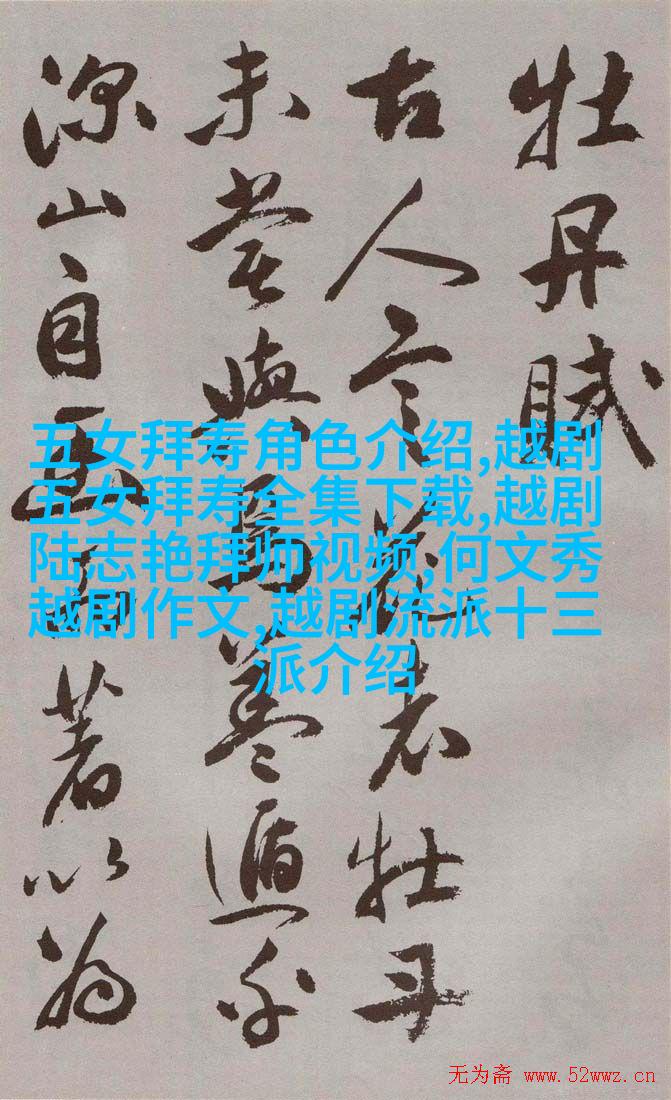 牡丹賦
古人言花者牡丹
未嘗與焉蓋遁乎
深山自幽而著以為
五女拜寿角色介绍,越剧
五女拜寿全集下载,越剧
陆志艳拜师视频,何文秀
越剧作文,越剧流派十三
派介绍
无为斋 www.52wwz.cn